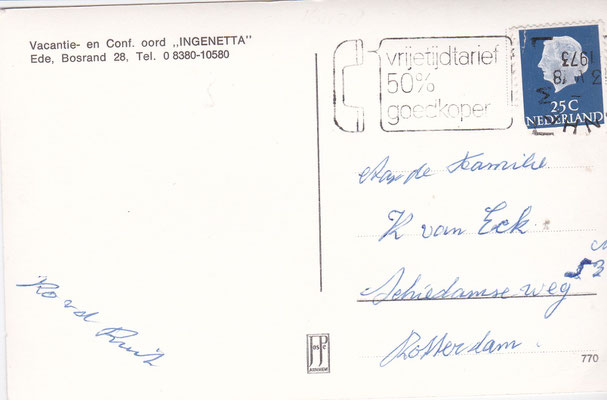 Vacantie- en Conf. oord „INGENETTA"
Ede, Bosrand 28, Tel. 0 8380-10580
vrijetijdtarief
50%
goedkoper
1973
25 C
NEDERLAND
Aan de Familie
K van Eck
53
Schiedamseweg
Rotterdam.
Ko vd
JosPé
770